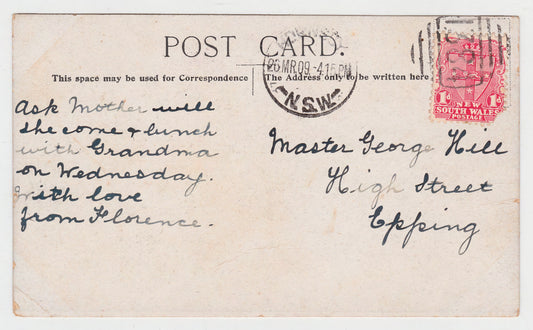 POST CARD.
This space may be used for Correspondence
The Address only to be written here
26MR.09-4.15PM
N.S.W.
1d 1d
NEW
SOUTH WALES
POSTAGE
Ask Mother will
she come & lunch
with Grandma
on Wednesday.
With love
from Florence.
Master George Hill
High Street
Epping